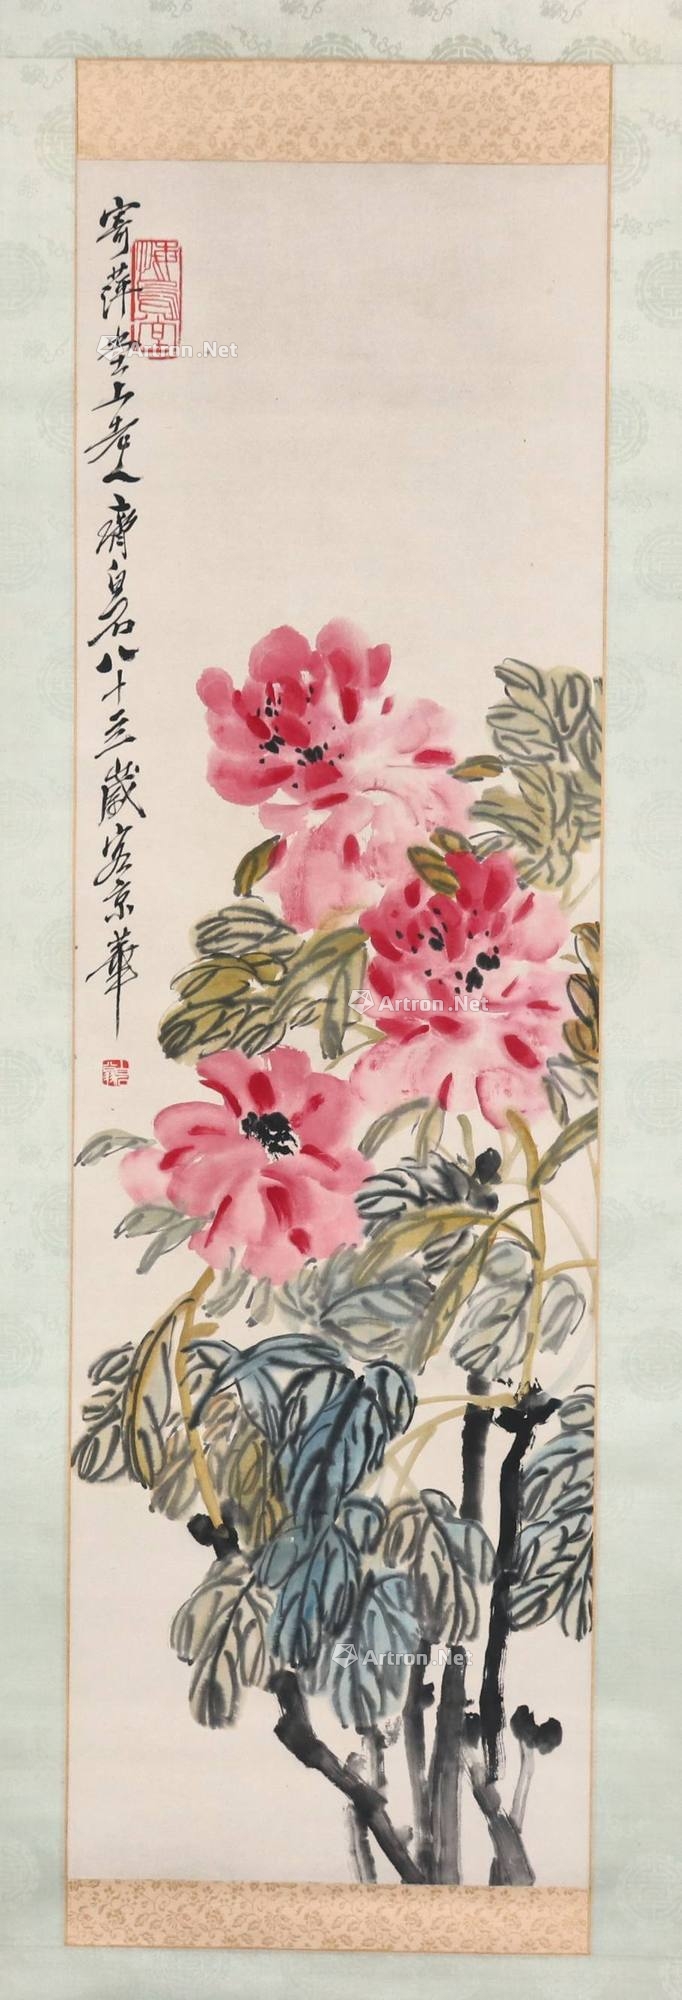 寄萍堂上老人齊白石八十三歲客京華
Artron.Net
Artron.Net
Artron.Net